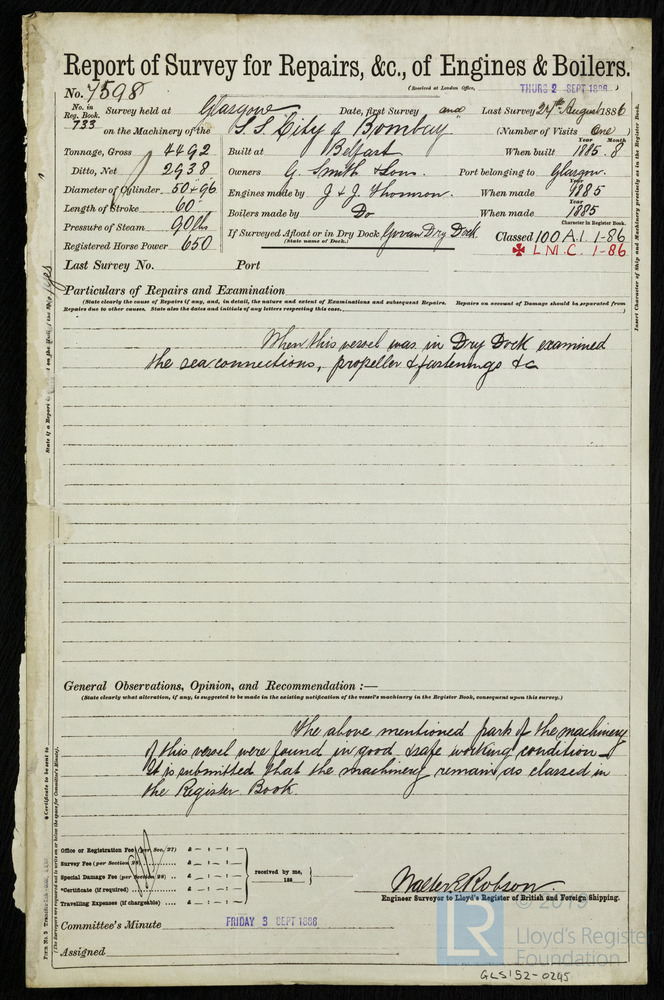 Report of Survey for Repairs, &c., of Engines & Boilers.
(Received at London Office, THURS 2 SEPT 1886 )
No. 7598
No. in Reg. Book. 733
Survey held at Glasgow Date, first Survey and Last Survey 27th August 1886
on the Machinery of the S.S. City of Bombay (Number of Visits One )
Tonnage, Gross 4492 Built at Belfast When built Year 1885. Month 8
Ditto, Net 2938 Owners G. Smith & Sons. Port belonging to Glasgow.
Diameter of Cylinder 50 & 96 Engines made by J & J. Thomson. When made Year 1885
Length of Stroke 60" Boilers made by Do When made Year 1885
Pressure of Steam 90 lbs If Surveyed Afloat or in Dry Dock Govan Dry Dock
(State name of Dock.)
Character in Register Book.
Classed 100 A.1 1-86
Registered Horse Power 650 L M.C. 1-86
Last Survey No. Port
Particulars of Repairs and Examination
(State clearly the cause of Repairs if any, and, in detail, the nature and extent of Examinations and subsequent Repairs. Repairs on account of Damage should be separated from
Repairs due to other causes. State also the dates and initials of any letters respecting this case.
When this vessel was in Dry Dock examined
the sea connections, propeller & fastenings &c
General Observations, Opinion, and Recommendation :—
(State clearly what alteration, if any, is suggested to be made in the existing notification of the vessel's machinery in the Register Book, consequent upon this survey.)
The above mentioned parts of the machinery
of this vessel were found in good & safe working condition
It is submitted that the machinery remain as classed in
the Register Book.
Office or Registration Fee (per Sec. 27) £
Survey Fee (per Section 28) £
Special Damage Fee (per Section 28) £
Certificate (if required) £
Travelling Expenses (if chargeable) £
received by me,
188
Walter E Robson.
Engineer Surveyor to Lloyd's Register of British and Foreign Shipping.
Committee's Minute FRIDAY 3 SEPT 1886
Assigned
© 2019
LR Lloyd's Register
Foundation
GLS152-0245
Insert Character of Ship and Machinery precisely as in the Register Book.